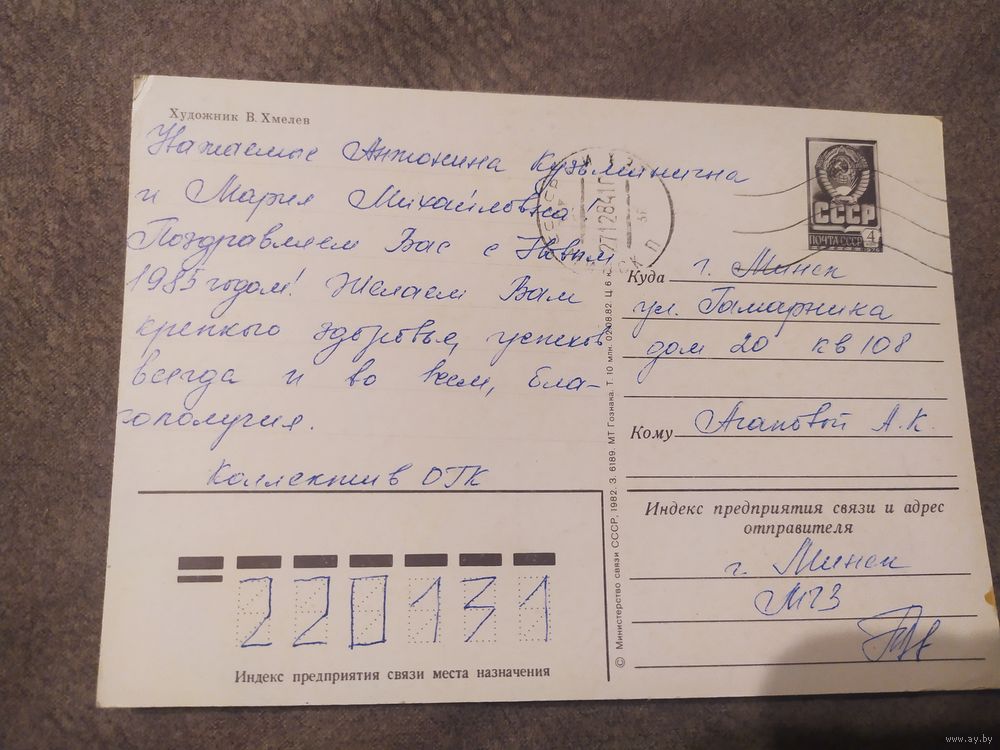 Художник В. Хмелев
Уважаемые Антонина Кузьминична
и Мария Михайловна!
Поздравляем Вас с Новым
1985 годом! Желаем Вам
крепкого здоровья, успехов
всегда и во всем, бла-
гополучия.
Коллектив ОТК
СССР
ПОЧТА СССР 4
1976
271284
Куда г. Минск
ул. Гамарника
дом 20 кв 108
Кому Агаповой А.К.
Индекс предприятия связи и адрес
отправителя
г. Минск
МЧЗ
220131
Индекс предприятия связи места назначения
© Министерство связи СССР, 1982. З. 6189. МТ Гознака. Т. 10 млн. 02.08.82. Ц 6 к.
www.ay.by